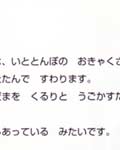 は、いととんぼの　おきゃくさ
たたんで　すわります。
だまを　くるりと　うごかすた
あっている　みたいです。